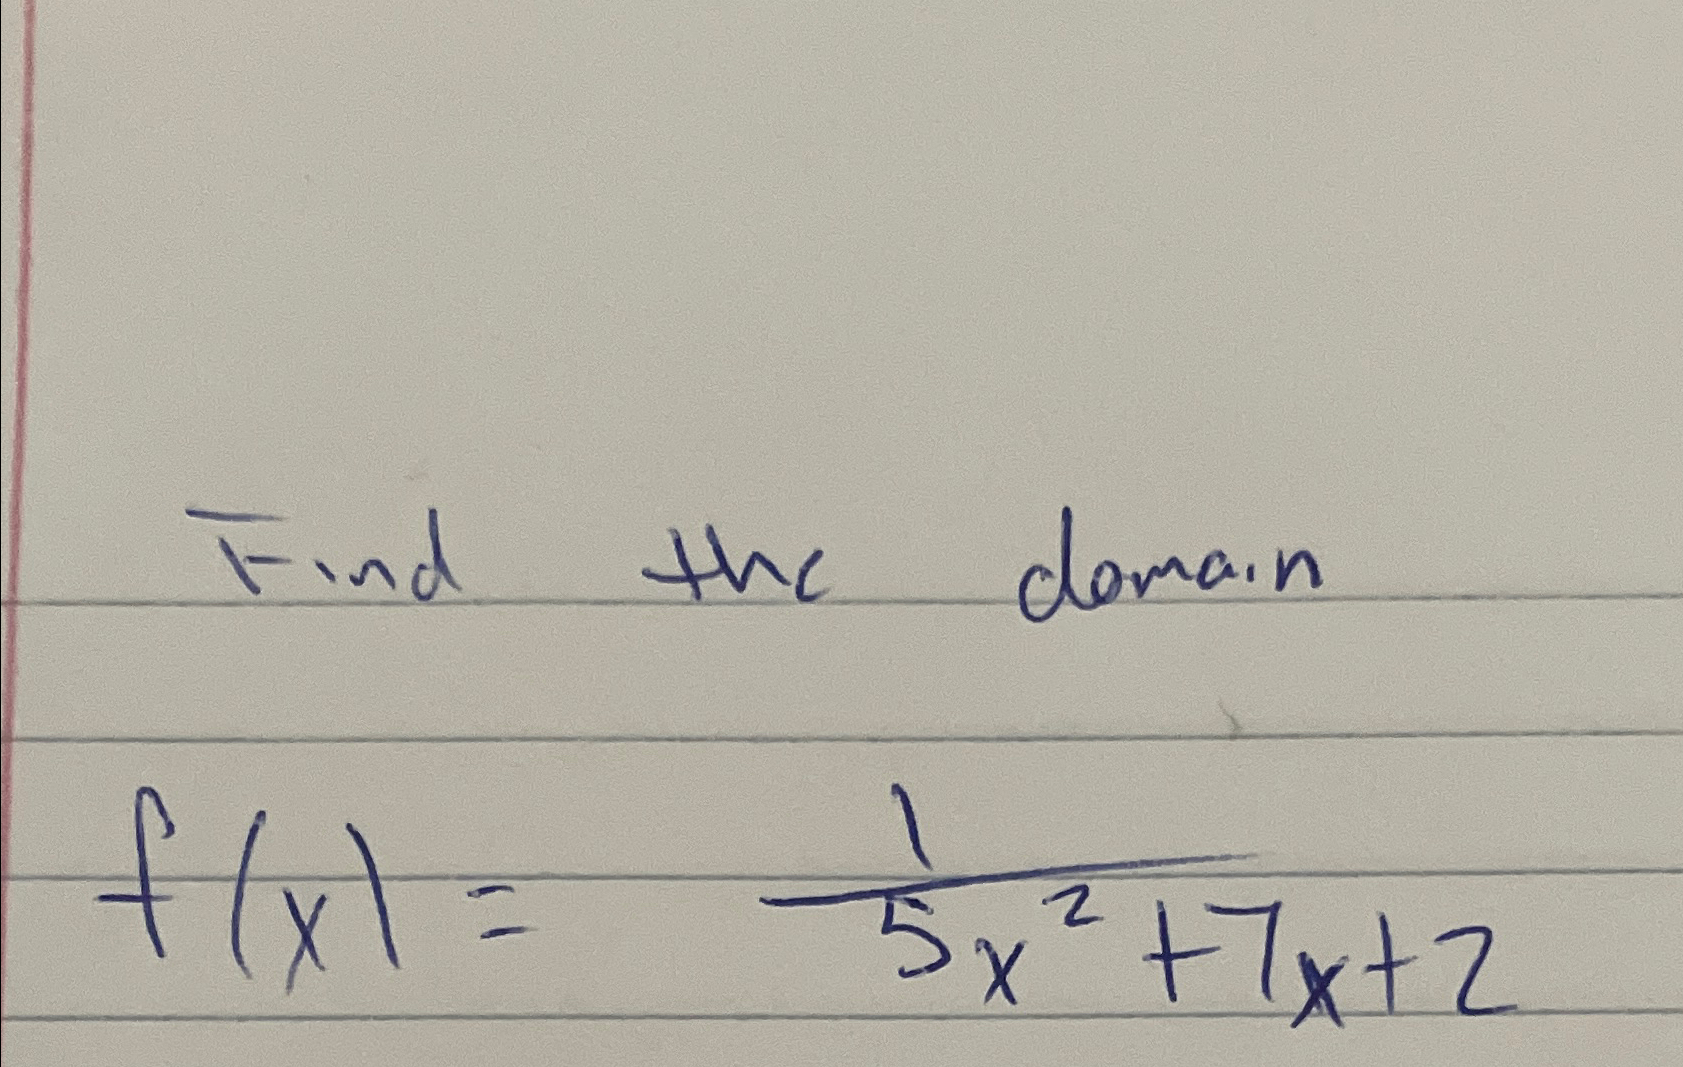 Find the domain
f(x) = 1/(5x² + 7x + 2)